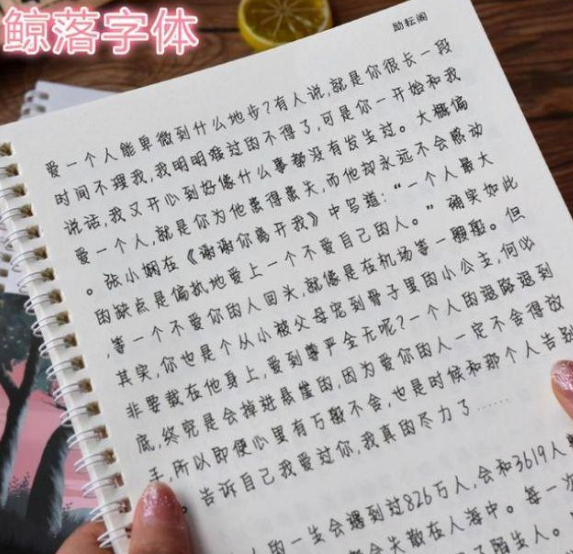 鲸落字体
励耘阁
爱一个人能卑微到什么地步?有人说,就是你很长一段
时间不理我,我明明难过的不得了,可是你一开始和我
说话,我又开心到好像什么事都没有发生过。大概偏
爱一个人,就是你为他患得患失,而他却永远不会感动
。张小娴在《谢谢你离开我》中写道:“一个人最大
的缺点是偏执地爱上一个不爱自己的人。”确实如此
,等一个不爱你的人回头,就像是在机场等一艘船。但
其实,你也是个从小被父母宠到骨子里的小公主,何必
非要栽在他身上,爱到尊严全无呢?一个人的退路退到
底,终究是会掉进悬崖的,因为爱你的人一定不会得寸
,所以即便心里有万般不舍,也是时候和那个人告别
。告诉自己我爱过你,我真的尽力了……
人的一生会遇到过826万人,会和3619人
会失散在人海中。每一次
了陌生人。